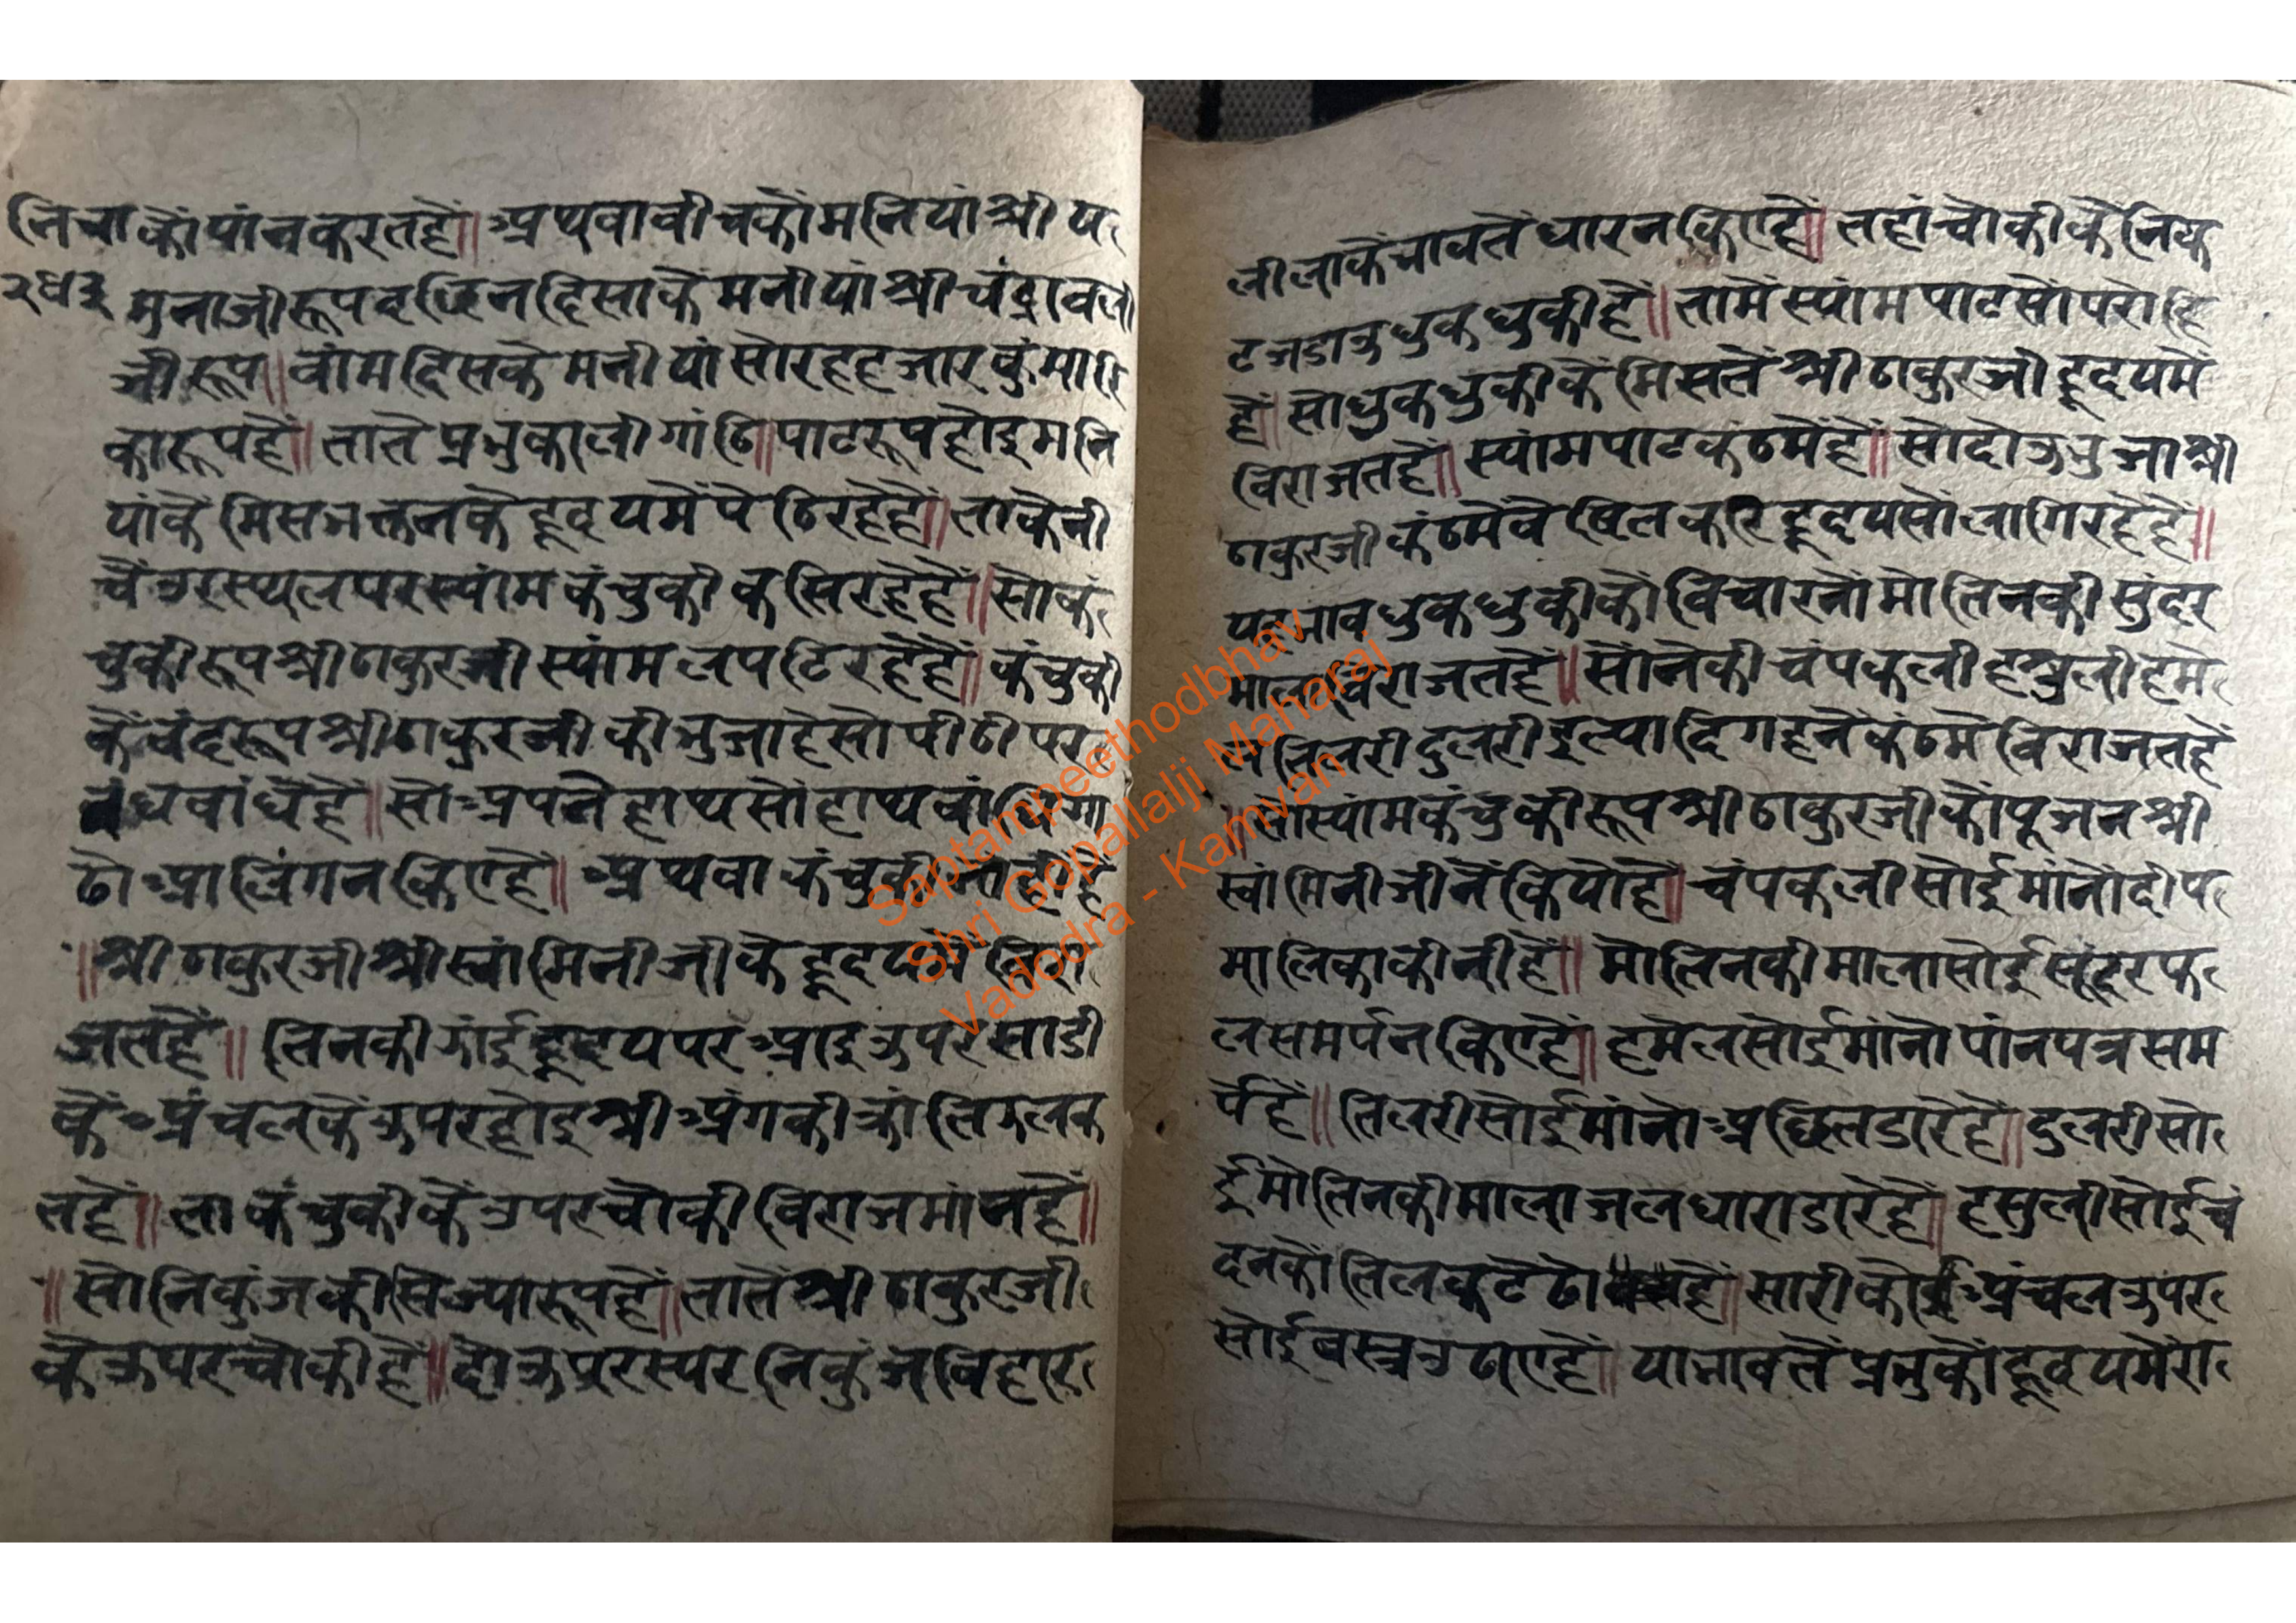 नि चा कौं पांन करत हैं॥ अथवा वीच कौ मनियां श्री य
२४३ मुना जी रूप दछिन दिसा के मनीयां श्री चंद्रावली
जी रूप॥ वांम दिस के मनी यां सोरह हजार कुंमारि
का रूप हैं॥ तातें प्रभु काली गांठि॥ पाट रूप होइ मनि
यां कें मिस भक्तन के हृदय में पेठि रहे हैं॥ ता के नी
चें उरस्थल पर स्यांम कंचुकी कसि रहे हैं॥ सो कं
चुकी रूप श्री ठाकुर जी स्यांम लपटि रहे हैं॥ कंचुकी
कें वंद रूप श्री ठाकुर जी की भुजा हे सो पीठी पर
वंध वांधे हैं॥ सो अपने हाथ सों हाथ वांधि गा
ढो आलिंगन किए हैं॥ अथवा कंचुकी
॥ श्री ठाकुर जी श्री स्वांमिनी जी के हृदय में विरा
जत हैं॥ तिनकी झांई हृदय पर आइ उपर साडी
कें अंचल कें उपर होइ श्री अंग की क्रांति झलक
त हैं॥ ता कंचुकी कें उपर चौकी विराजमांन हैं॥
॥ सो निकुंज की सिज्या रूप हैं॥ तातें श्री ठाकुर जी
के उपर चौकी हैं॥ दोऊ परस्पर निकुंज विहार
लीला कें भाव तें धारन किए हैं॥ तहां चौकी कें निक
ट जडाउ धुकधुकी हैं॥ तामें स्यांम पाट सों परोहि
हैं॥ सो धुकधुकी कें मिस तें श्री ठाकुर जी हृदय में
विराजत हैं॥ स्यांम पाट कंठ में हैं॥ सो दोऊ भुजा श्री
ठाकुर जी कंठ में वे खिल कर हृदय सों लागि रहे हैं॥
यह भाव धुकधुकी कौं विचारनों मोतिन की सुंदर
माला विराजत हैं॥ सोंने की चंपकली हसुली हमे
ल तिलरी दुलरी इत्यादि गहने कंठ में विराजत हैं
॥ सो स्यांम कंचुकी रूप श्री ठाकुर जी कौं पूजन श्री
स्वांमिनी जी नें कियो हैं॥ चंपकली सोई मांनों दीप
मालिका कीनी हैं॥ मोतिन की माला सोई सुंदर फ
ल समर्पन किए हैं॥ हमेल सोई मांनो पांन पत्र सम
र्पे हैं॥ तिलरी सोई मांनो अछित डारे हैं॥ दुलरी सो
ई मोतिन की माला जलधारा डारे हैं॥ हसुली सोई चं
दन कौ तिलक टेढो हैं॥ सारी कौ अंचल उपर
सोई वस्त्र उठाए हैं॥ या भाव तें प्रभु कौं हृदय में रा
Saptampeethodbhav
Shri Gopallalji Maharaj
Vadodra - Kamvan